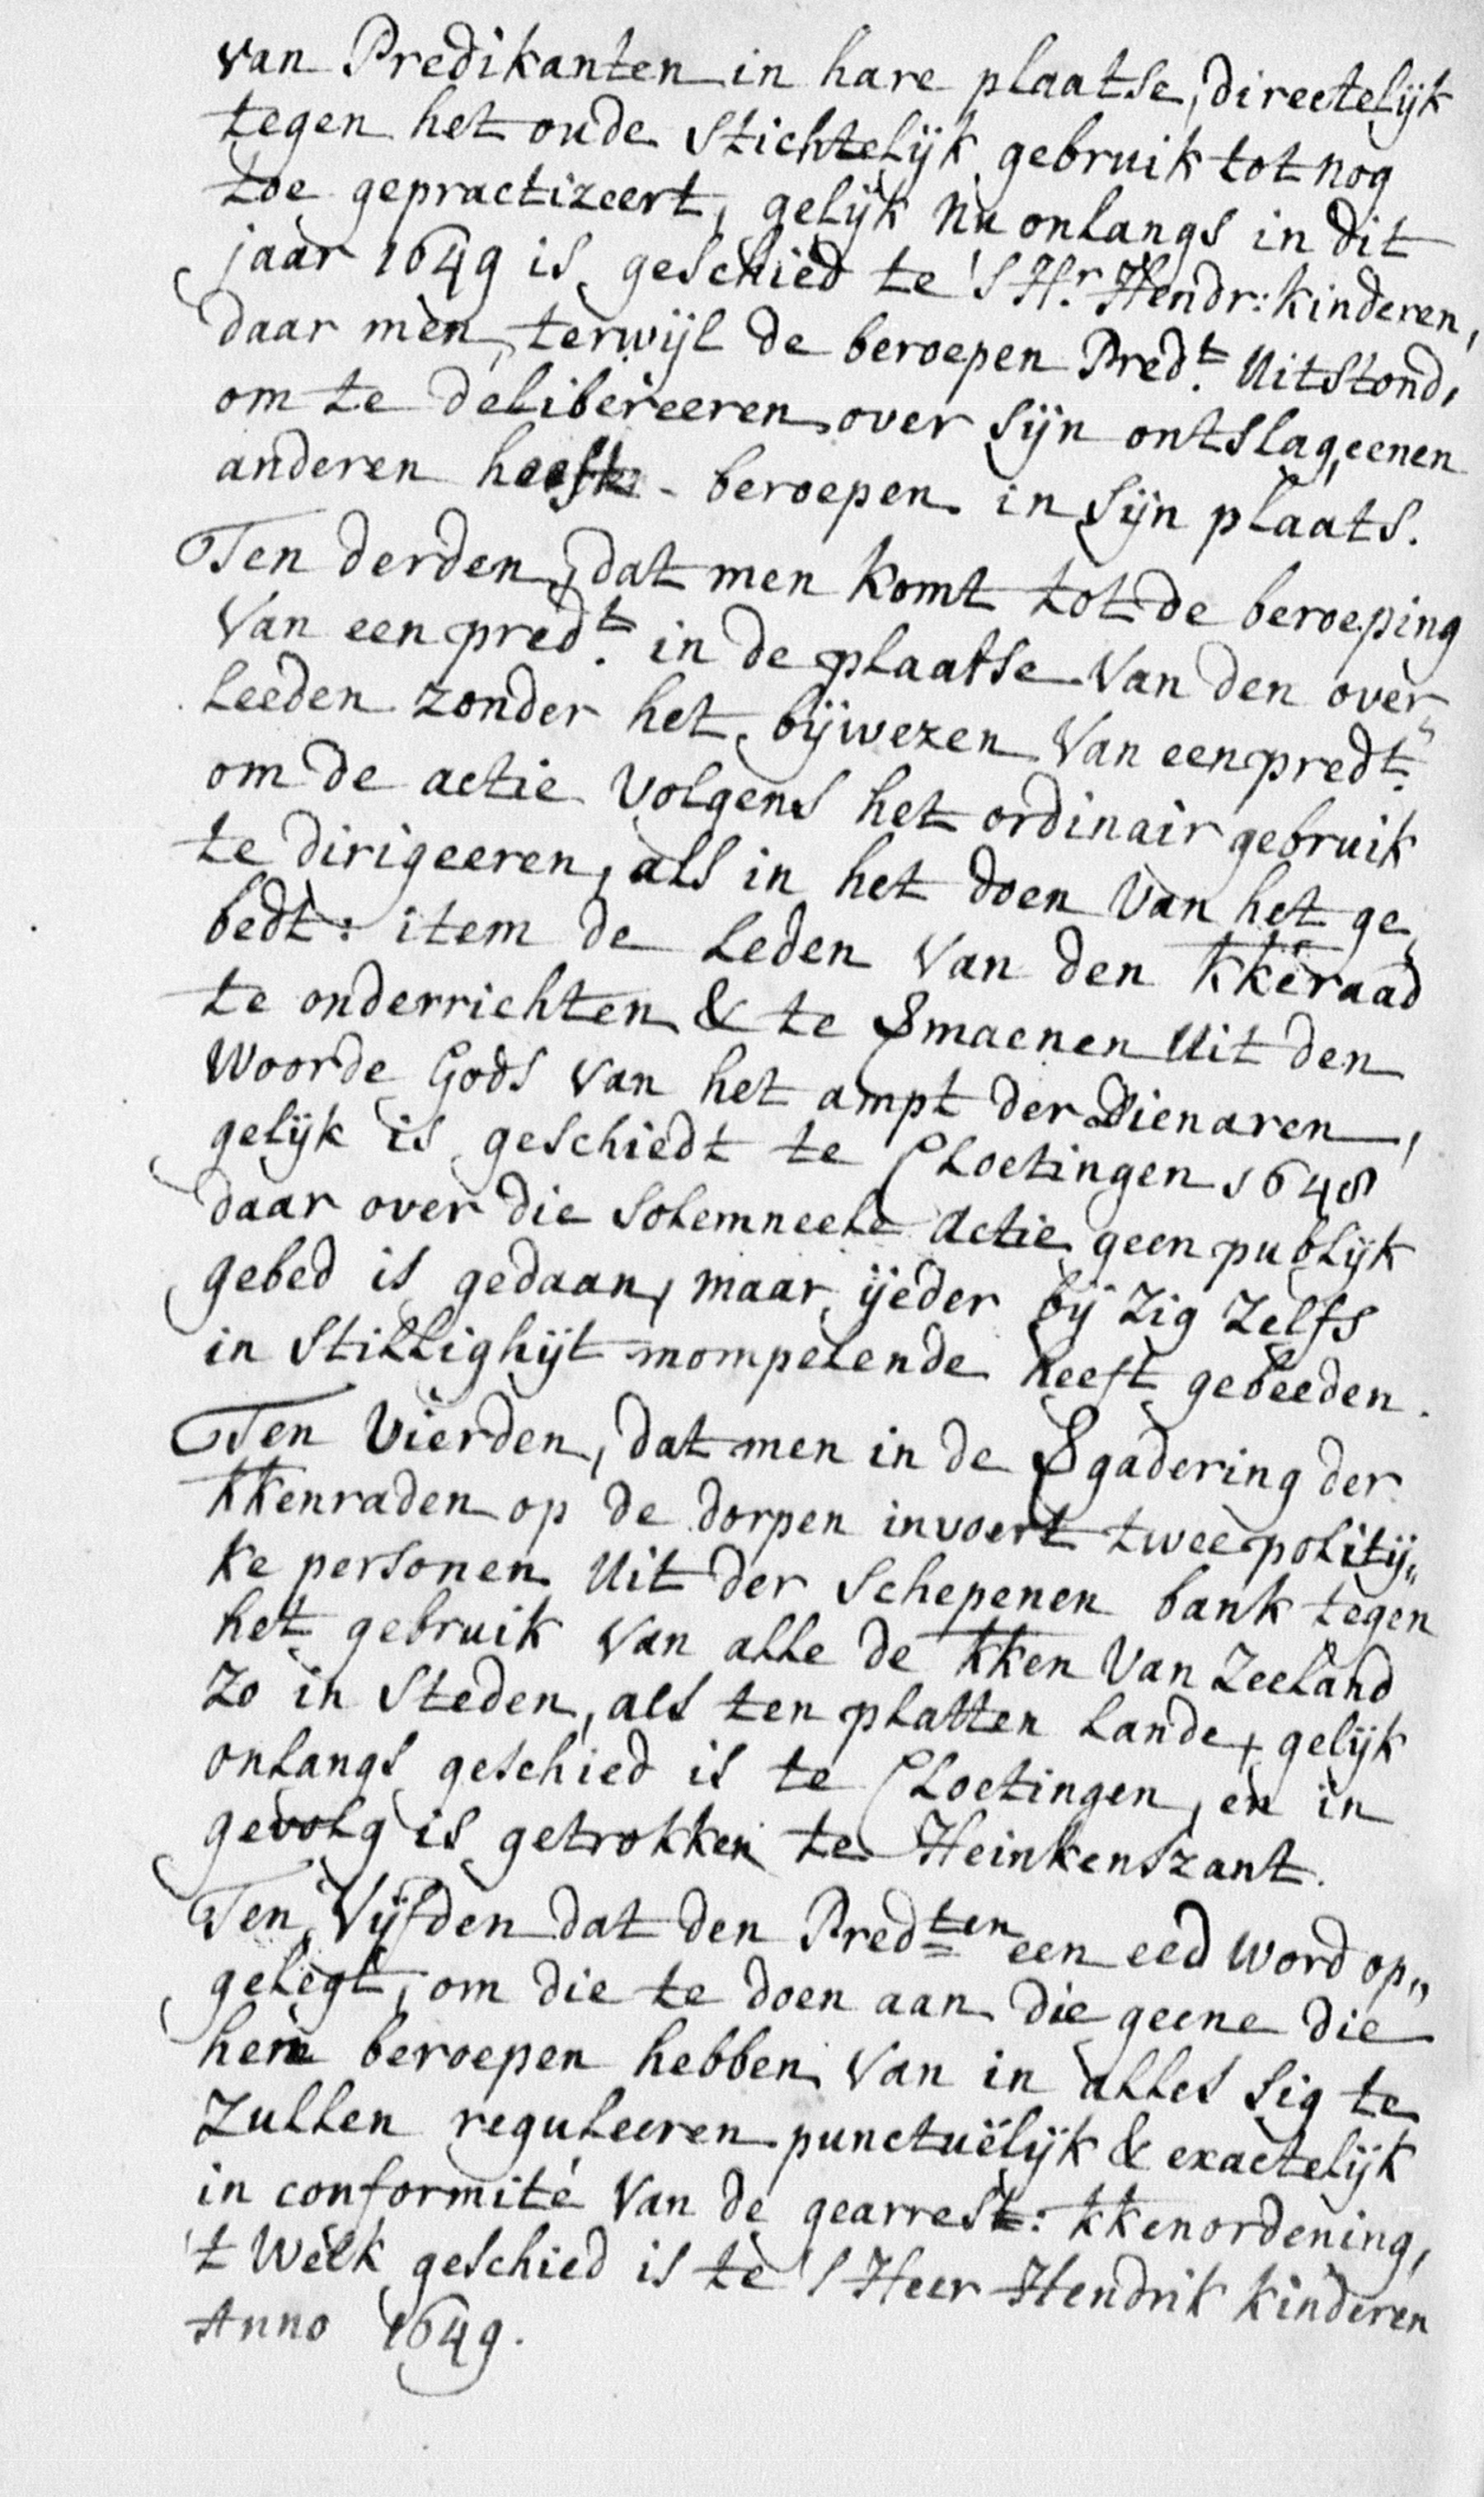 van Predikanten in hare plaatse, directelijk
tegen het oude Stichtelijk gebruik tot nog
toe gepractizeert, gelijk nu onlangs in dit
jaar 1649 is geschied te 'S Hr. Hendr: Kinderen,
daar men, terwijl de beroepen Predt. uitstond,
om te delibereeren over sijn ontslag, eenen
anderen heeft beroepen in sijn plaats.
Ten derden, dat men komt tot de beroeping
van een predt. in de plaatse van den over„
leeden zonder het bijwezen van een predt.
om de actie volgens het ordinair gebruik
te dirigeeren, als in het doen van het ge„
bedt: item de Leden van den kkeraad
te onderrichten & te vmaenen uit den
Woorde Gods van het ampt der Dienaren,
gelijk is geschiedt te Cloetingen 1648
daar over die solemneele actie geen publijk
gebed is gedaan, maar ijeder bij zig zelfs
in Stillighijt mompelende heeft gebeeden.
Ten vierden, dat men in de vgadering der
kkenraden op de dorpen invoert twee politij„
ke personen uit der Schepenen bank tegen
het gebruik van alle de kken van Zeeland
zo in Steden, als ten platten lande, gelijk
onlangs geschied is te Cloetingen, en in
gevolg is getrokken te Heinkenszant.
Ten vijfden dat den Predten een eed word op„
gelegt, om die te doen aan die geene die
hem beroepen hebben van in alles sig te
zullen reguleeren punctuëlijk & exactelijk
in conformité van de gearrest: kkenordening,
't welk geschied is te 'S Heer Hendrik Kinderen
Anno 1649.